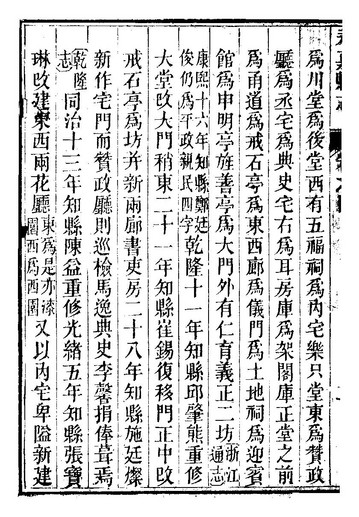 為川堂為後堂西有五福祠為內宅樂只堂東為賛政
廳為丞宅為典史宅右為耳房庫為架閣庫正堂之前
為甬道為戒石亭為東西廊為儀門為土地祠為迎賓
館為申明亭旌善亭為大門外有仁育義正二坊浙江通志
康熙十六年知縣鄭廷俊仍為平政親民四字乾隆十一年知縣邱肇熊重修
大堂改大門稍東二十一年知縣崔錫復移門正中改
戒石亭為坊并新兩廊書吏房二十八年知縣施廷燦
新作宅門而賛政廳則巡檢馬逸典史李馨捐俸葺焉
乾隆志同治十三年知縣陳益重修光緒五年知縣張寶
琳改建東西兩花廳東為是亦漆園西為西園又以內宅卑隘新建